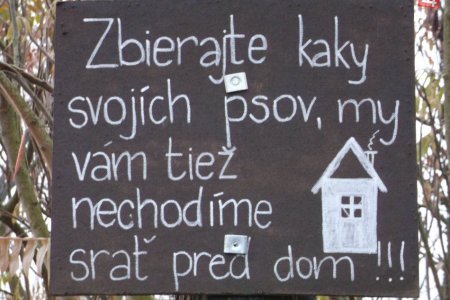 Zbierajte kaky
svojích psov, my
vám tiež
nechodíme
srať pred dom !!!